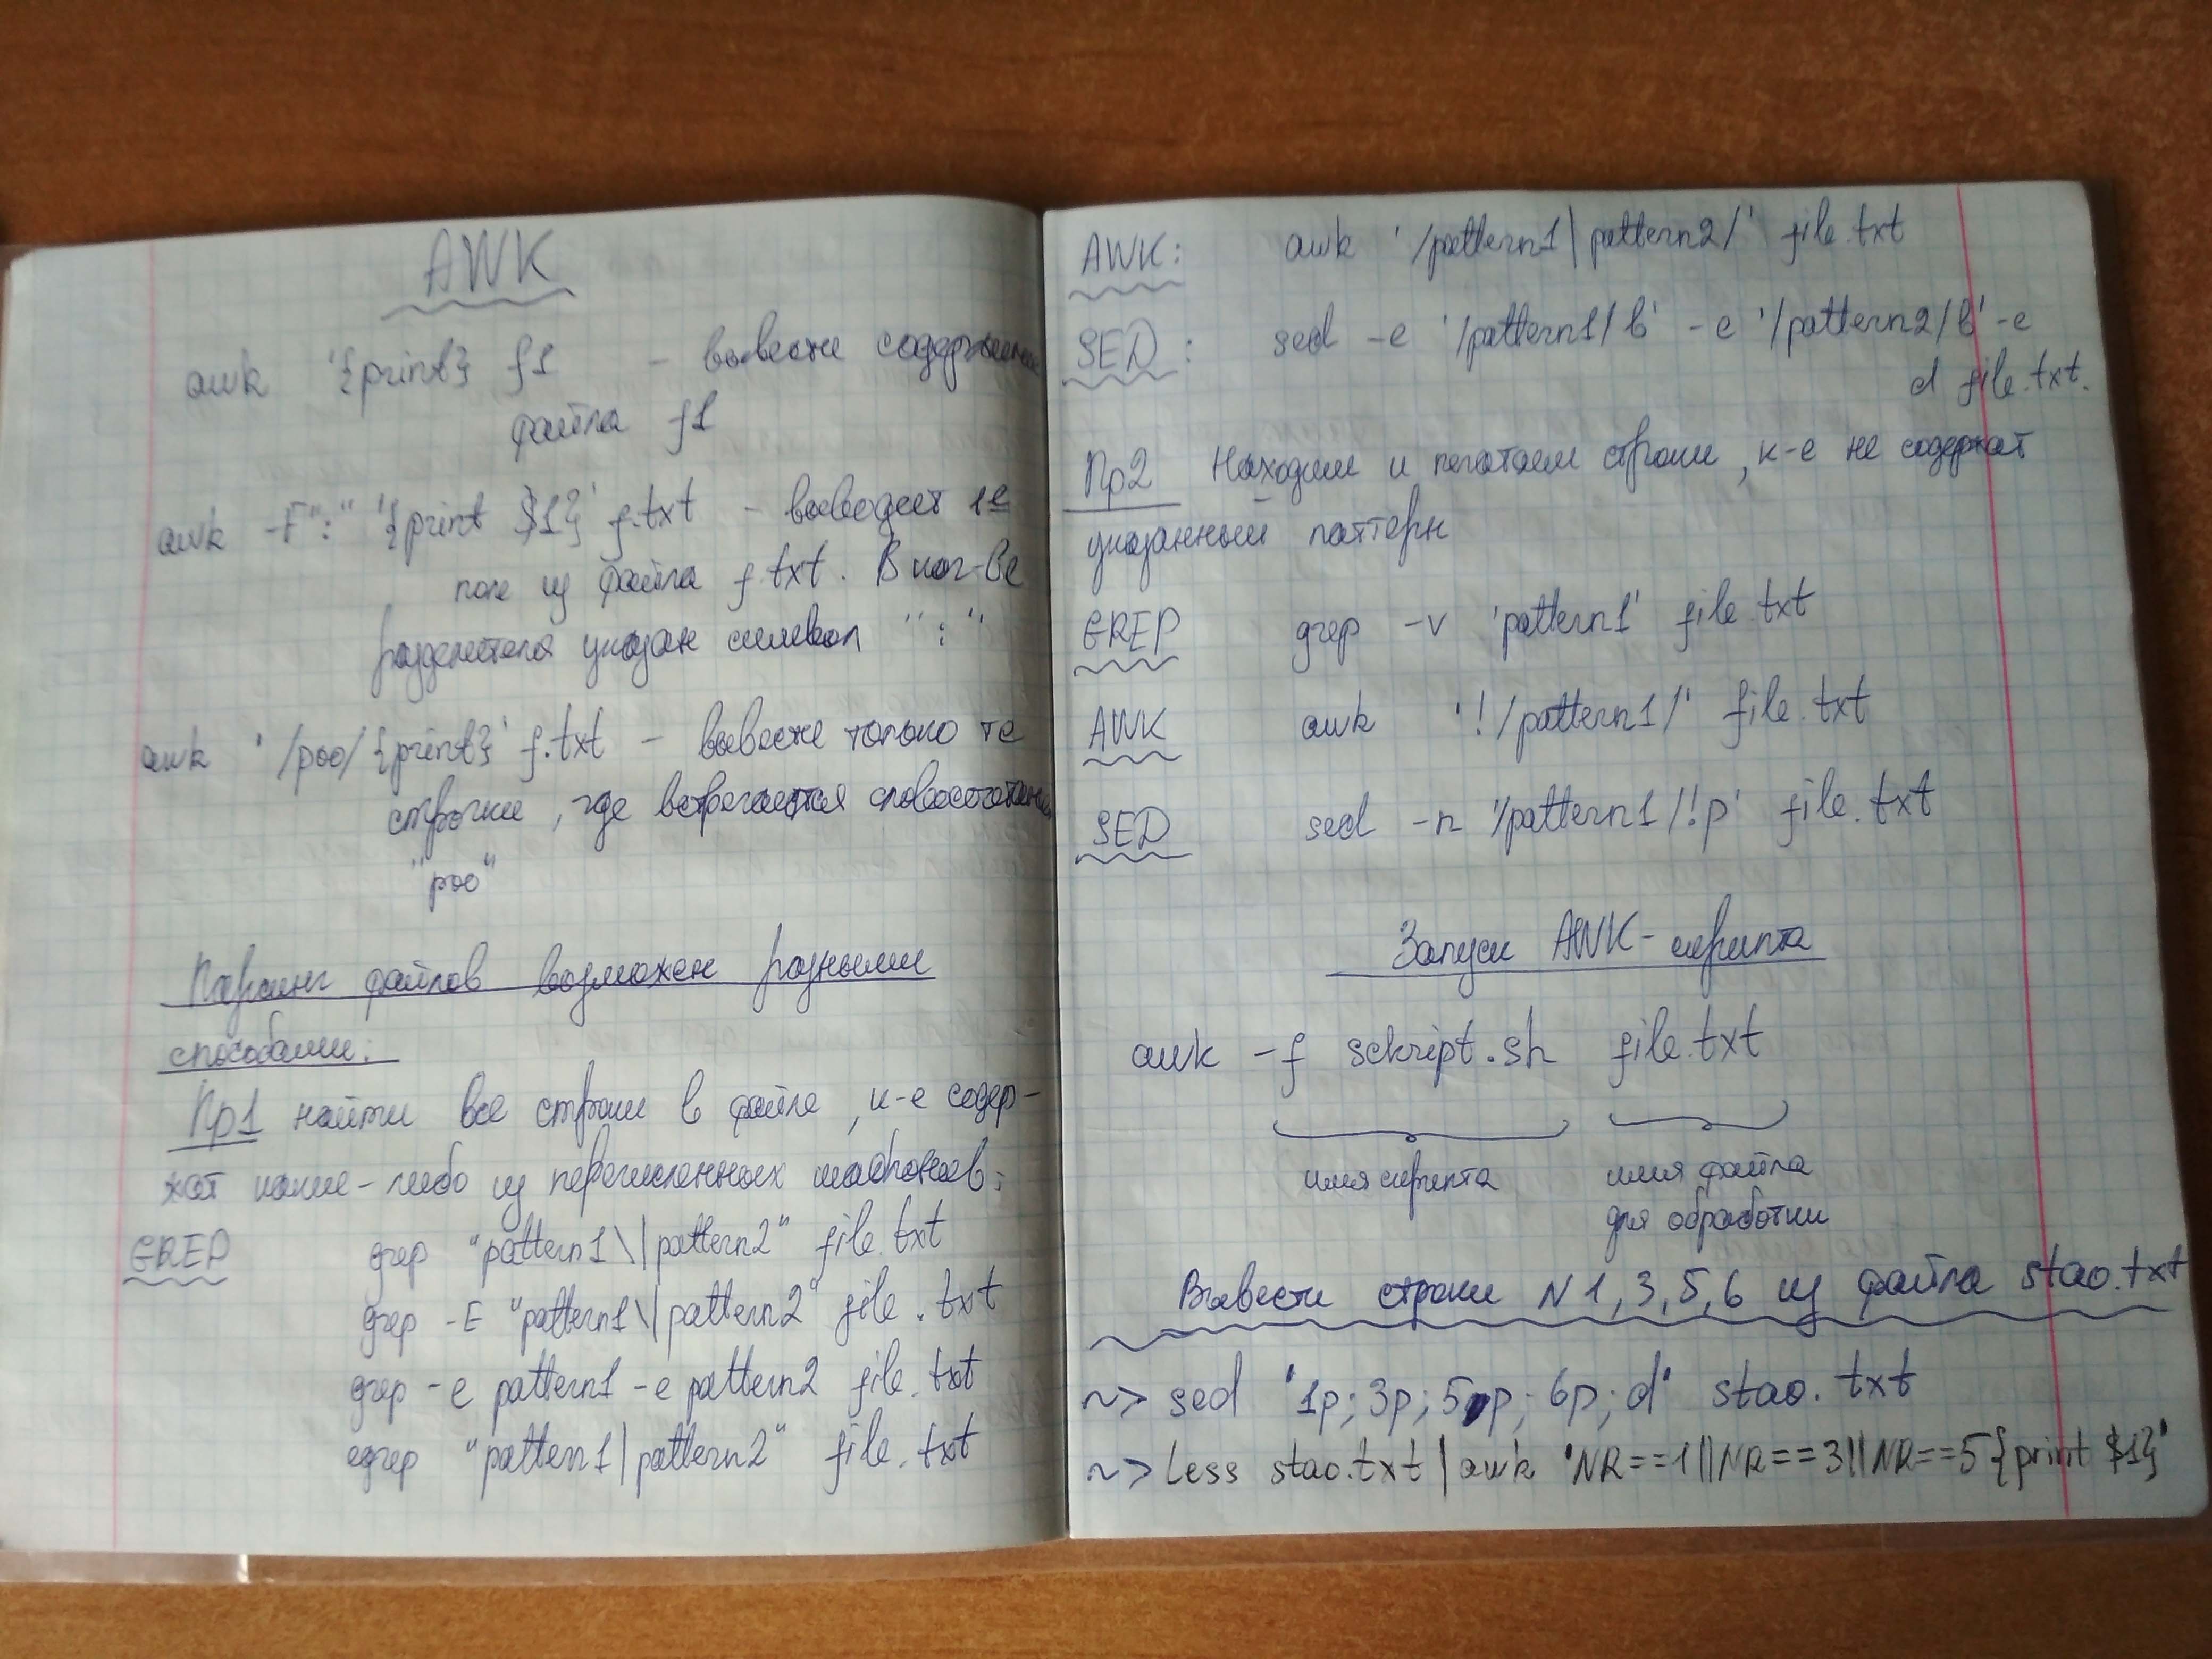 AWK
awk '{print} f1 - вывести содержимое
файла f1
awk -F":" '{print $1}' f.txt - выводит 1е
поле из файла f.txt. В кач-ве
разделителя указан символ ":"
awk '/poo/{print}' f.txt - вывести только те
строчки, где встречается словосочетание
"poo"
Парсинг файлов возможен разными
способами:
Пр1 найти все строки в файле, к-е содер-
жат какие-либо из перечисленных шаблонов:
GREP grep "pattern1\|pattern2" file.txt
grep -E "pattern1\|pattern2" file.txt
grep -e pattern1 -e pattern2 file.txt
egrep "pattern1|pattern2" file.txt
AWK: awk '/pattern1|pattern2/' file.txt
SED: sed -e '/pattern1/b' -e '/pattern2/b' -e
d file.txt.
Пр2 Находим и печатаем строки, к-е не содержат
указанный паттерн
GREP grep -v 'pattern1' file.txt
AWK awk '!/pattern1/' file.txt
SED sed -n '/pattern1/!p' file.txt
Запуск AWK-скрипта
awk -f sckript.sh file.txt
имя скрипта имя файла
для обработки
Вывести строки N1,3,5,6 из файла stao.txt
~> sed '1p;3p;5p;6p;d' stao.txt
~> less stao.txt | awk 'NR==1||NR==3||NR==5{print $1}'